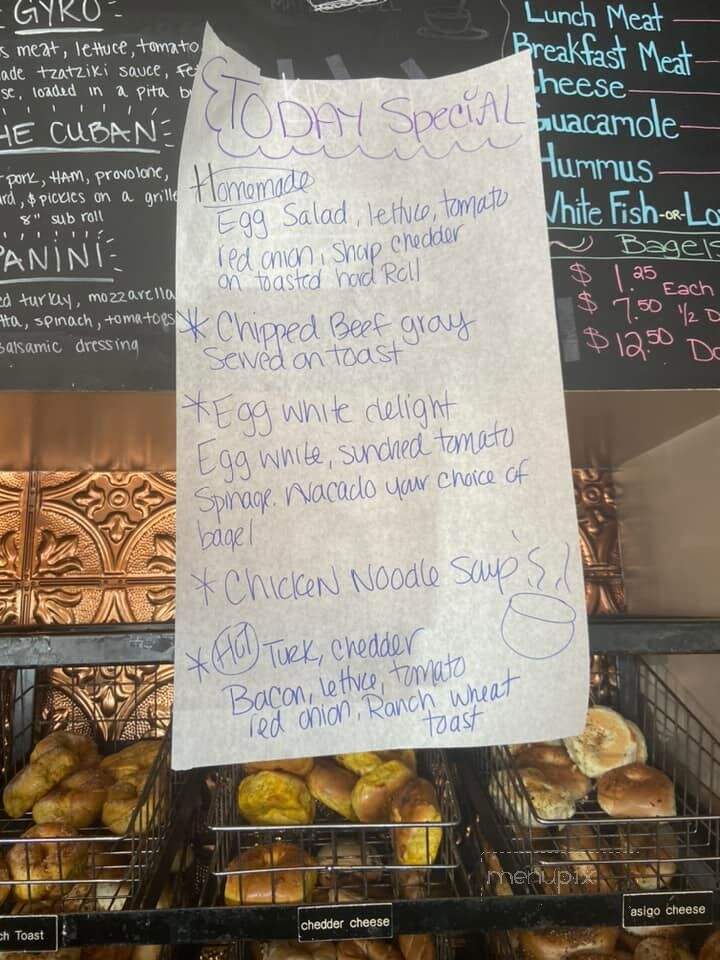 GYRO
s meat, lettuce, tomato
ade tzatziki sauce, fe
se, loaded in a pita b
HE CUBAN
pork, HAM, provolone,
rd, & pickles on a grille
8" sub roll
PANINI
ed turkey, mozzarella
tta, spinach, tomatoes
Balsamic dressing
TODAY SPECIAL
Homemade
Egg Salad, lettuce, tomato
red onion, Sharp chedder
on toasted hard Roll
* Chipped Beef gravy
Served on toast
* Egg white delight
Egg white, sundried tomato
Spinage. Avacado your choice of
bagel
* Chicken Noodle Soup
* Hot Turk, chedder
Bacon, lettuce, tomato
red onion, Ranch wheat
toast
Lunch Meat
Breakfast Meat
heese
Guacamole
Hummus
White Fish -OR- Lo
Bagels
$ 1.25 Each
$ 7.50 1/2 D
$ 12.50 Do
ch Toast
chedder cheese
asigo cheese
menupix